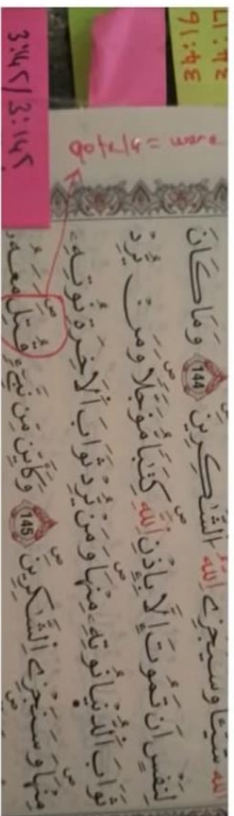 34:17
34:16
3:45/3:145
qotela = were
اللَّهَ شَيْئًا وَسَيَجْزِى اللَّهُ الشَّٰكِرِينَ 144 وَمَا كَانَ
لِنَفْسٍ اَن تَمُوتَ إِلَّا بِإِذْنِ اللَّهِ كِتَٰبًا مُّؤَجَّلًا وَمَنْ يُّرِدْ
ثَوَابَ الدُّنْيَا نُؤْتِهِۦ مِنْهَا وَمَنْ يُّرِدْ ثَوَابَ الَاخِرَةِ نُؤْتِهِۦ
مِنْهَا وَسَنَجْزِى الشَّٰكِرِينَ 145 وَكَأَيِّن مِّن نَّبِےٓءٍ قُتِلَ مَعَهُۥ